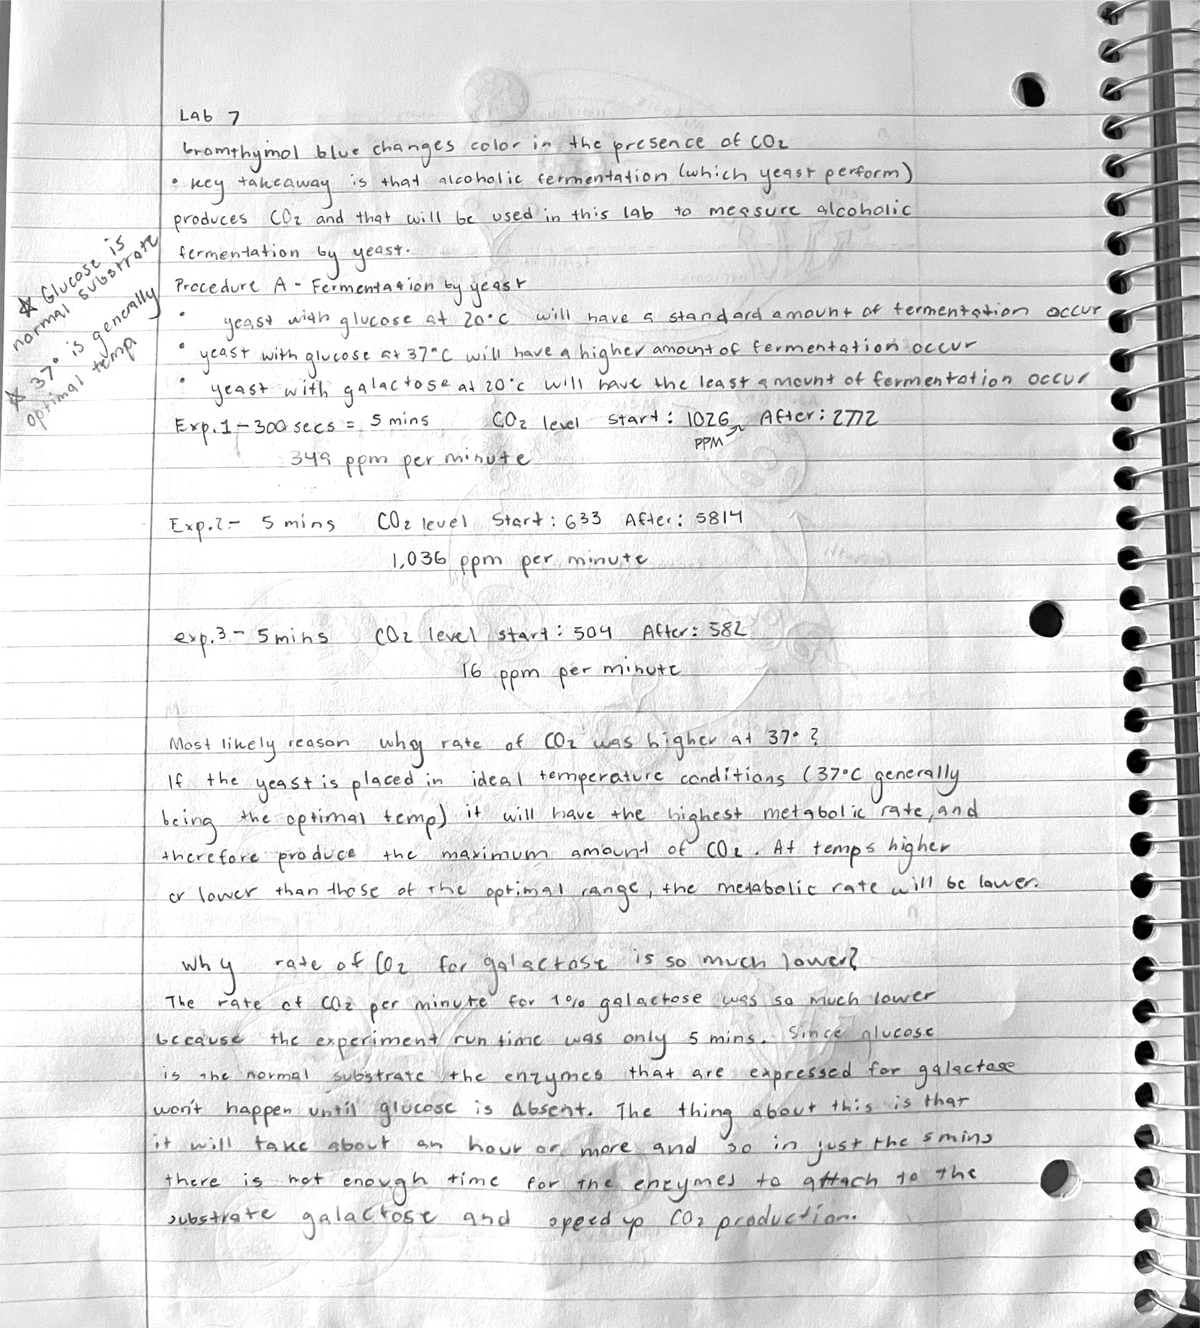 Lab 7
bromthymol blue changes color in the presence of CO2
• key takeaway is that alcoholic fermentation (which yeast perform)
produces CO2 and that will be used in this lab to measure alcoholic
fermentation by yeast.
☆ Glucose is
normal substrate
☆ 37° is generally
optimal temp
Procedure A - Fermentation by yeast
• yeast with glucose at 20°C will have a standard amount of fermentation occur
• yeast with glucose at 37°C will have a higher amount of fermentation occur
• yeast with galactose at 20°C will have the least amount of fermentation occur
Exp. 1 - 300 secs = 5 mins CO2 level start: 1026 After: 2772
PPM
349 ppm per minute
Exp. 2 - 5 mins CO2 level Start: 633 After: 5814
1,036 ppm per minute
exp. 3 - 5 mins CO2 level start: 504 After: 582
16 ppm per minute
Most likely reason why rate of CO2 was higher at 37°?
If the yeast is placed in ideal temperature conditions (37°C generally
being the optimal temp) it will have the highest metabolic rate, and
therefore produce the maximum amount of CO2. At temps higher
or lower than those of the optimal range, the metabolic rate will be lower.
Why rate of CO2 for galactose is so much lower?
The rate of CO2 per minute for 1% galactose was so much lower
because the experiment run time was only 5 mins. Since glucose
is the normal substrate the enzymes that are expressed for galactose
won't happen until glucose is absent. The thing about this is that
it will take about an hour or more and so in just the 5 mins
there is not enough time for the enzymes to attach to the
substrate galactose and speed up CO2 production.